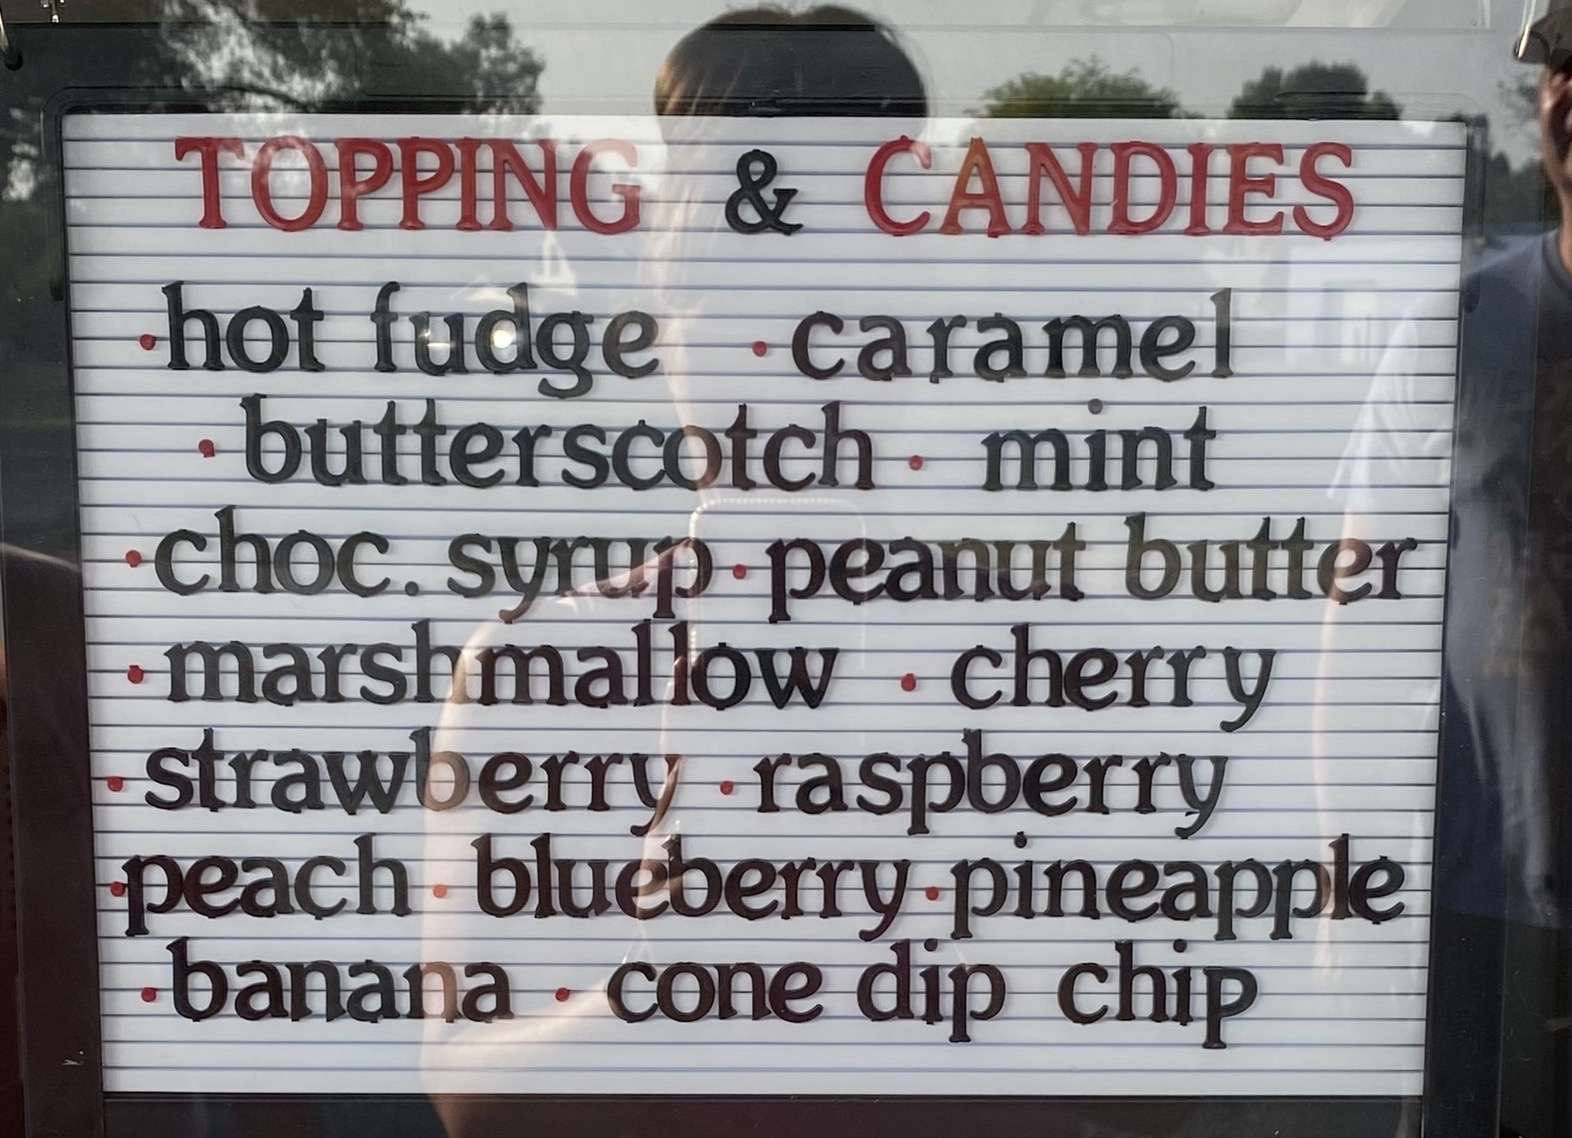 TOPPING & CANDIES
• hot fudge • caramel
• butterscotch • mint
• choc. syrup • peanut butter
• marshmallow • cherry
• strawberry • raspberry
• peach • blueberry • pineapple
• banana • cone dip chip